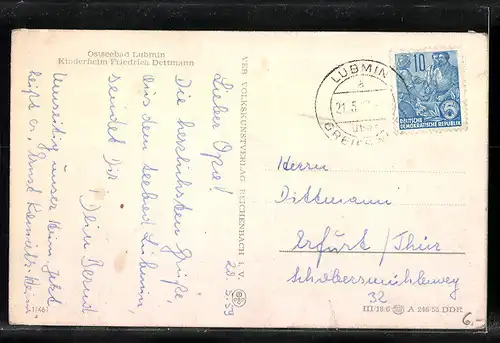 Ostseebad Lubmin
Kinderheim Friedrich Dettmann
Lieber Opa!
Die herzlichsten Grüße,
aus dem Seebad Lubmin,
sendet Dir
Dein Bernd
unser Heim. Jetzt
heißt es, Ernst
20.5.59
VEB VOLKSKUNSTVERLAG REICHENBACH i. V.
LUBMIN
a
21.5.
über
(GREIFSW
10
DEUTSCHE
DEMOKRATISCHE REPUBLIK
5
Herrn
Dittmann
Erfurt / Thür
Schobersmühlenweg
32
III/18/6 A 246/55 DDR
6,-